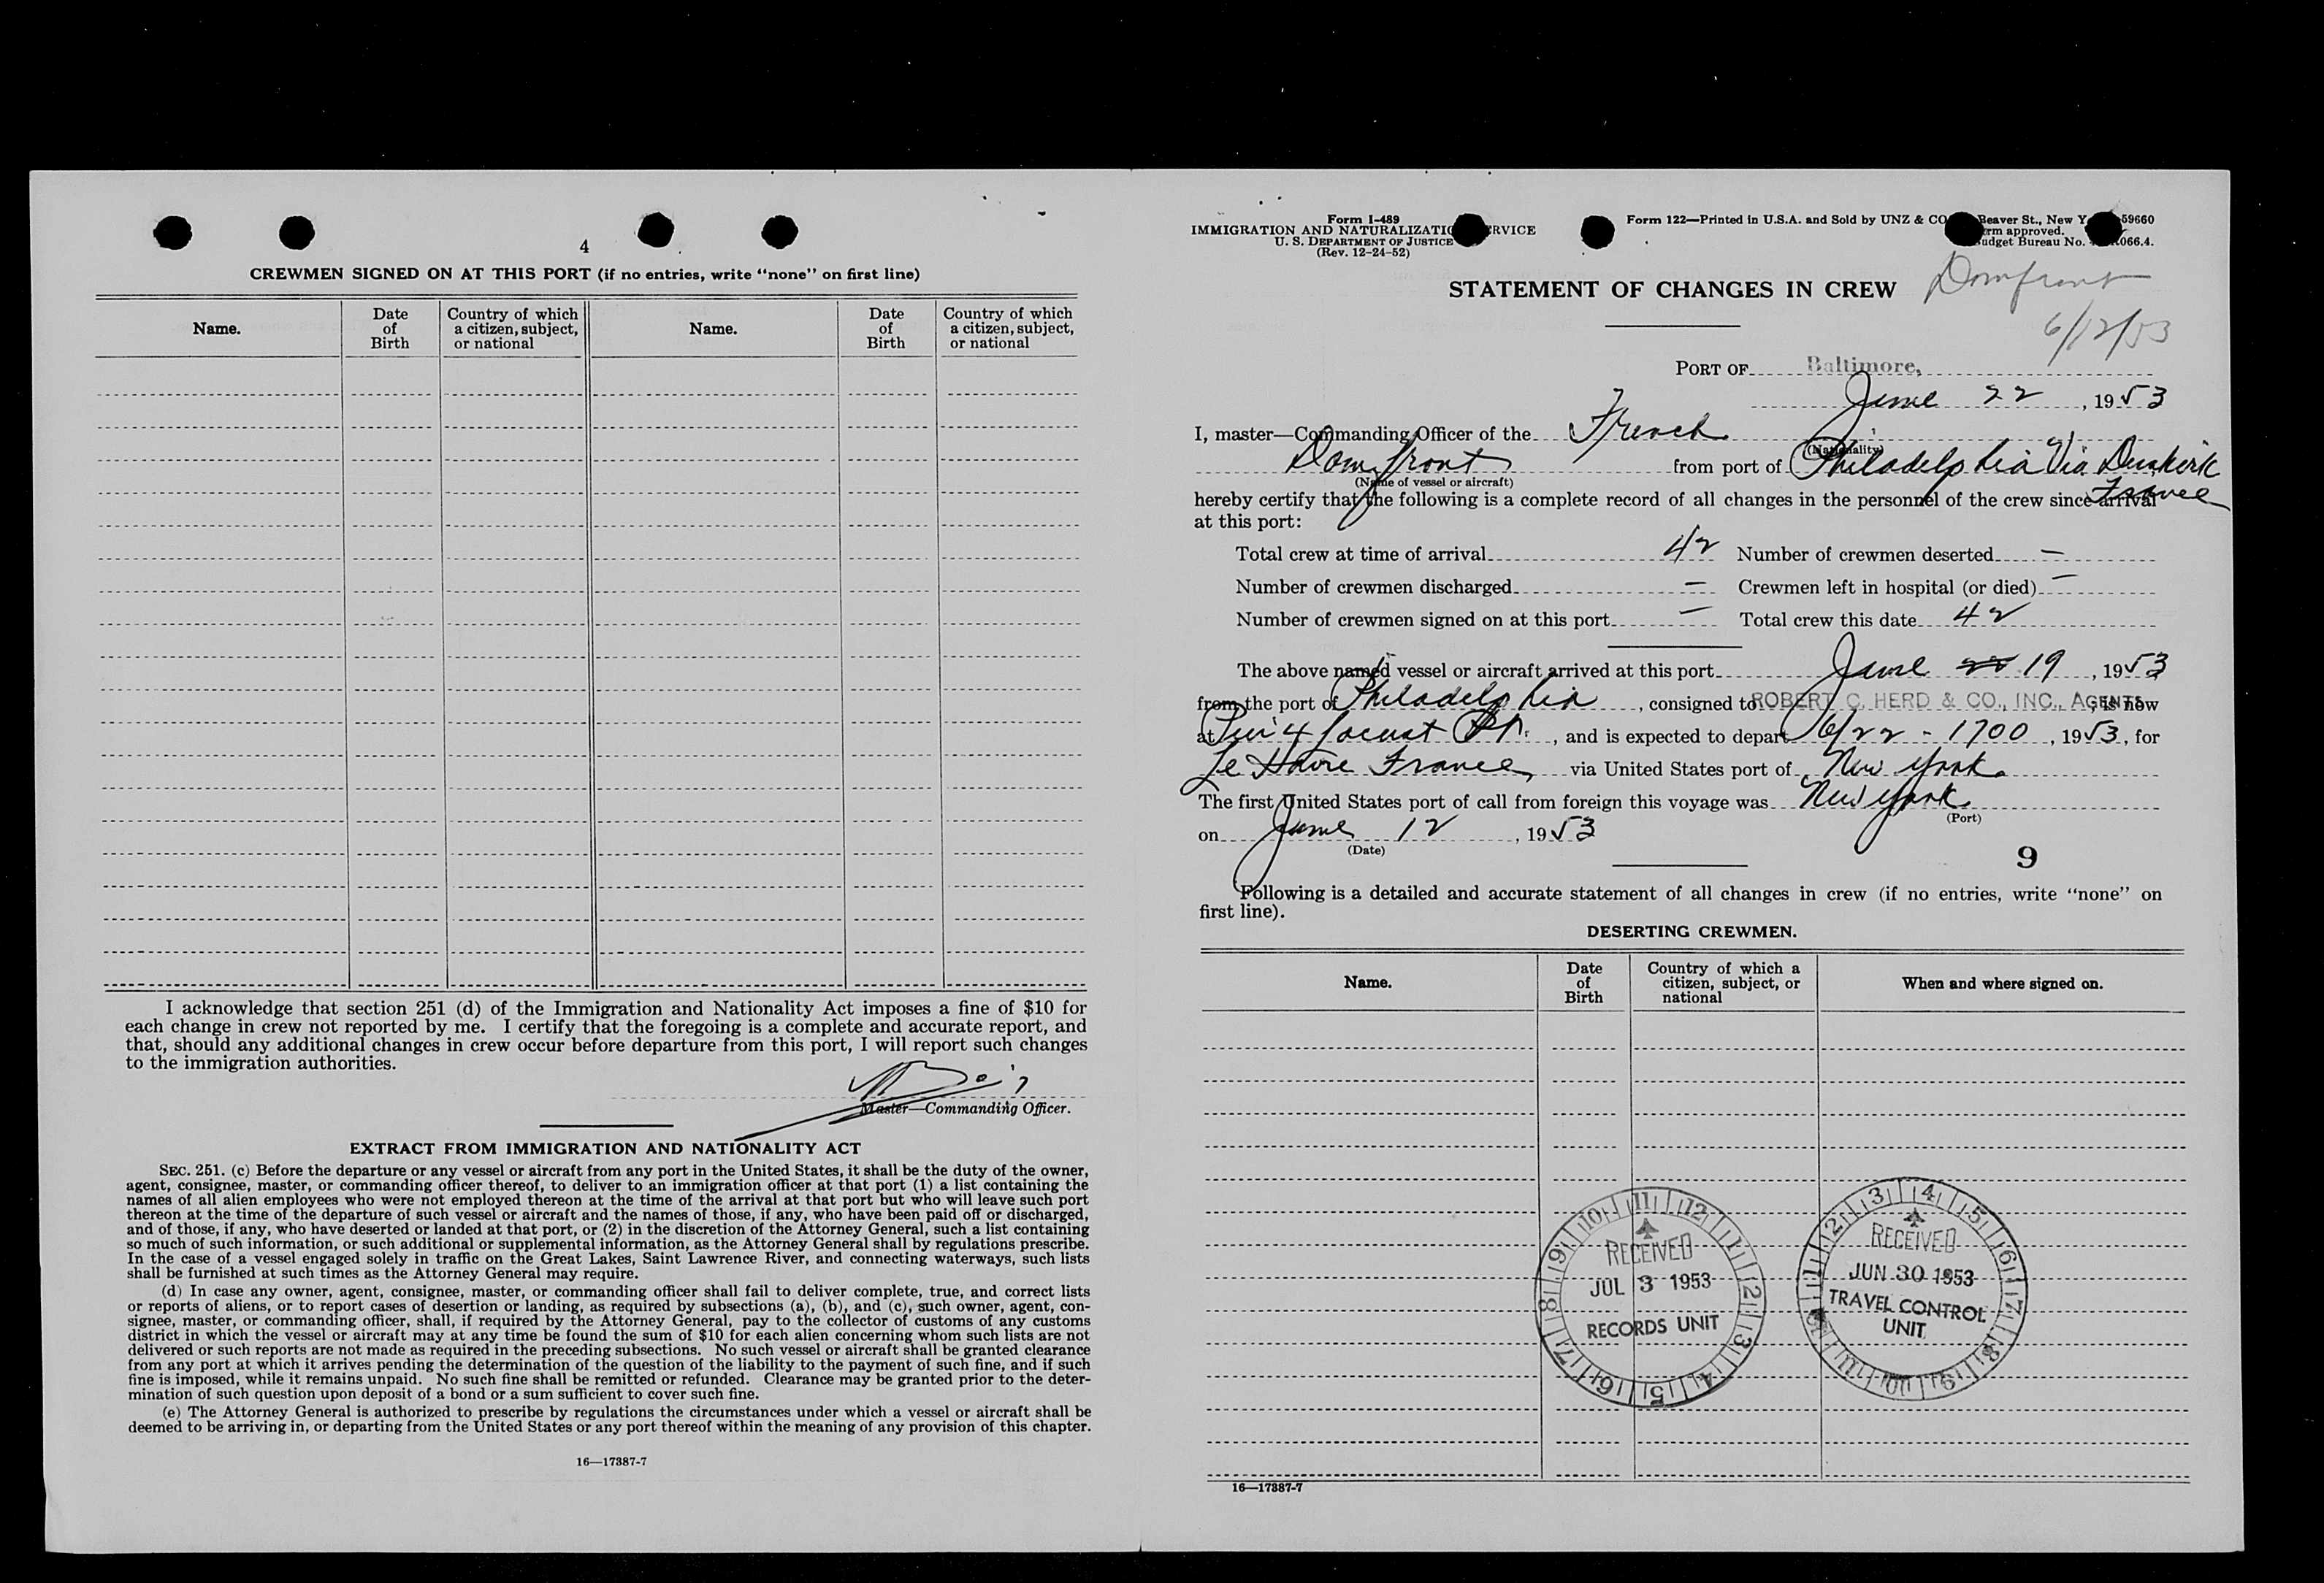 4
CREWMEN SIGNED ON AT THIS PORT (if no entries, write “none” on first line)
Name.
Date of Birth
Country of which a citizen, subject, or national
Name.
Date of Birth
Country of which a citizen, subject, or national
I acknowledge that section 251 (d) of the Immigration and Nationality Act imposes a fine of $10 for
each change in crew not reported by me. I certify that the foregoing is a complete and accurate report, and
that, should any additional changes in crew occur before departure from this port, I will report such changes
to the immigration authorities.
Master—Commanding Officer.
EXTRACT FROM IMMIGRATION AND NATIONALITY ACT
SEC. 251. (c) Before the departure or any vessel or aircraft from any port in the United States, it shall be the duty of the owner,
agent, consignee, master, or commanding officer thereof, to deliver to an immigration officer at that port (1) a list containing the
names of all alien employees who were not employed thereon at the time of the arrival at that port but who will leave such port
thereon at the time of the departure of such vessel or aircraft and the names of those, if any, who have been paid off or discharged,
and of those, if any, who have deserted or landed at that port, or (2) in the discretion of the Attorney General, such a list containing
so much of such information, or such additional or supplemental information, as the Attorney General shall by regulations prescribe.
In the case of a vessel engaged solely in traffic on the Great Lakes, Saint Lawrence River, and connecting waterways, such lists
shall be furnished at such times as the Attorney General may require.
(d) In case any owner, agent, consignee, master, or commanding officer shall fail to deliver complete, true, and correct lists
or reports of aliens, or to report cases of desertion or landing, as required by subsections (a), (b), and (c), such owner, agent, con-
signee, master, or commanding officer, shall, if required by the Attorney General, pay to the collector of customs of any customs
district in which the vessel or aircraft may at any time be found the sum of $10 for each alien concerning whom such lists are not
delivered or such reports are not made as required in the preceding subsections. No such vessel or aircraft shall be granted clearance
from any port at which it arrives pending the determination of the question of the liability to the payment of such fine, and if such
fine is imposed, while it remains unpaid. No such fine shall be remitted or refunded. Clearance may be granted prior to the deter-
mination of such question upon deposit of a bond or a sum sufficient to cover such fine.
(e) The Attorney General is authorized to prescribe by regulations the circumstances under which a vessel or aircraft shall be
deemed to be arriving in, or departing from the United States or any port thereof within the meaning of any provision of this chapter.
16—17387-7
Form I-489
IMMIGRATION AND NATURALIZATION SERVICE
U. S. DEPARTMENT OF JUSTICE
(Rev. 12-24-52)
Form 122—Printed in U.S.A. and Sold by UNZ & CO Beaver St., New Y 59660
rm approved.
udget Bureau No. 066.4.
STATEMENT OF CHANGES IN CREW
Domfront
6/12/53
PORT OF Baltimore,
June 22, 1953
I, master—Commanding Officer of the French
(Nationality)
Domfront from port of Philadelphia Via Dunkirk
France
(Name of vessel or aircraft)
hereby certify that the following is a complete record of all changes in the personnel of the crew since arrival
at this port:
Total crew at time of arrival 42 Number of crewmen deserted —
Number of crewmen discharged — Crewmen left in hospital (or died) —
Number of crewmen signed on at this port — Total crew this date 42
The above named vessel or aircraft arrived at this port June 22 19, 1953
from the port of Philadelphia, consigned to ROBERT C. HERD & CO., INC., AGENTS, is now
at Pier 4 Locust Pt., and is expected to depart 6/22 - 1700, 1953, for
Le Havre France, via United States port of New York
The first United States port of call from foreign this voyage was New York
(Port)
on June 12, 1953
(Date)
9
Following is a detailed and accurate statement of all changes in crew (if no entries, write “none” on
first line).
DESERTING CREWMEN.
Name.
Date of Birth
Country of which a citizen, subject, or national
When and where signed on.
11 12 1 2 3 4 5 6 7 8 9 10
RECEIVED
JUL 3 1953
RECORDS UNIT
3 4 5 6 7 8 9 10 11 12 1 2
RECEIVED
JUN 30 1953
TRAVEL CONTROL
UNIT
16—17387-7